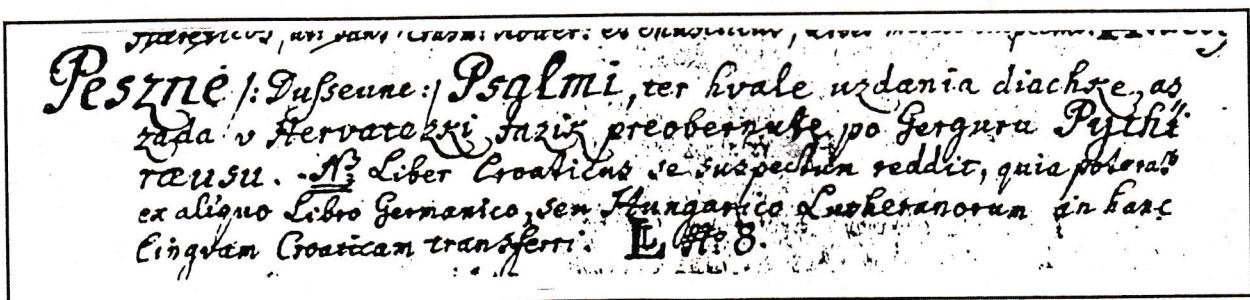 Peszne /: Dusseune :/ Psalmi, ter hvale uzdania diachke, as
zada v Hervatezki Iazik preobernute po Gerguru Pythi
ræusu. NB Liber Croaticus se suspectum reddit, quia poterat
ex aliquo Libro Germanico, seu Hungarico Lutheranorum in hanc
linguam Croaticam transferri. L No 8.